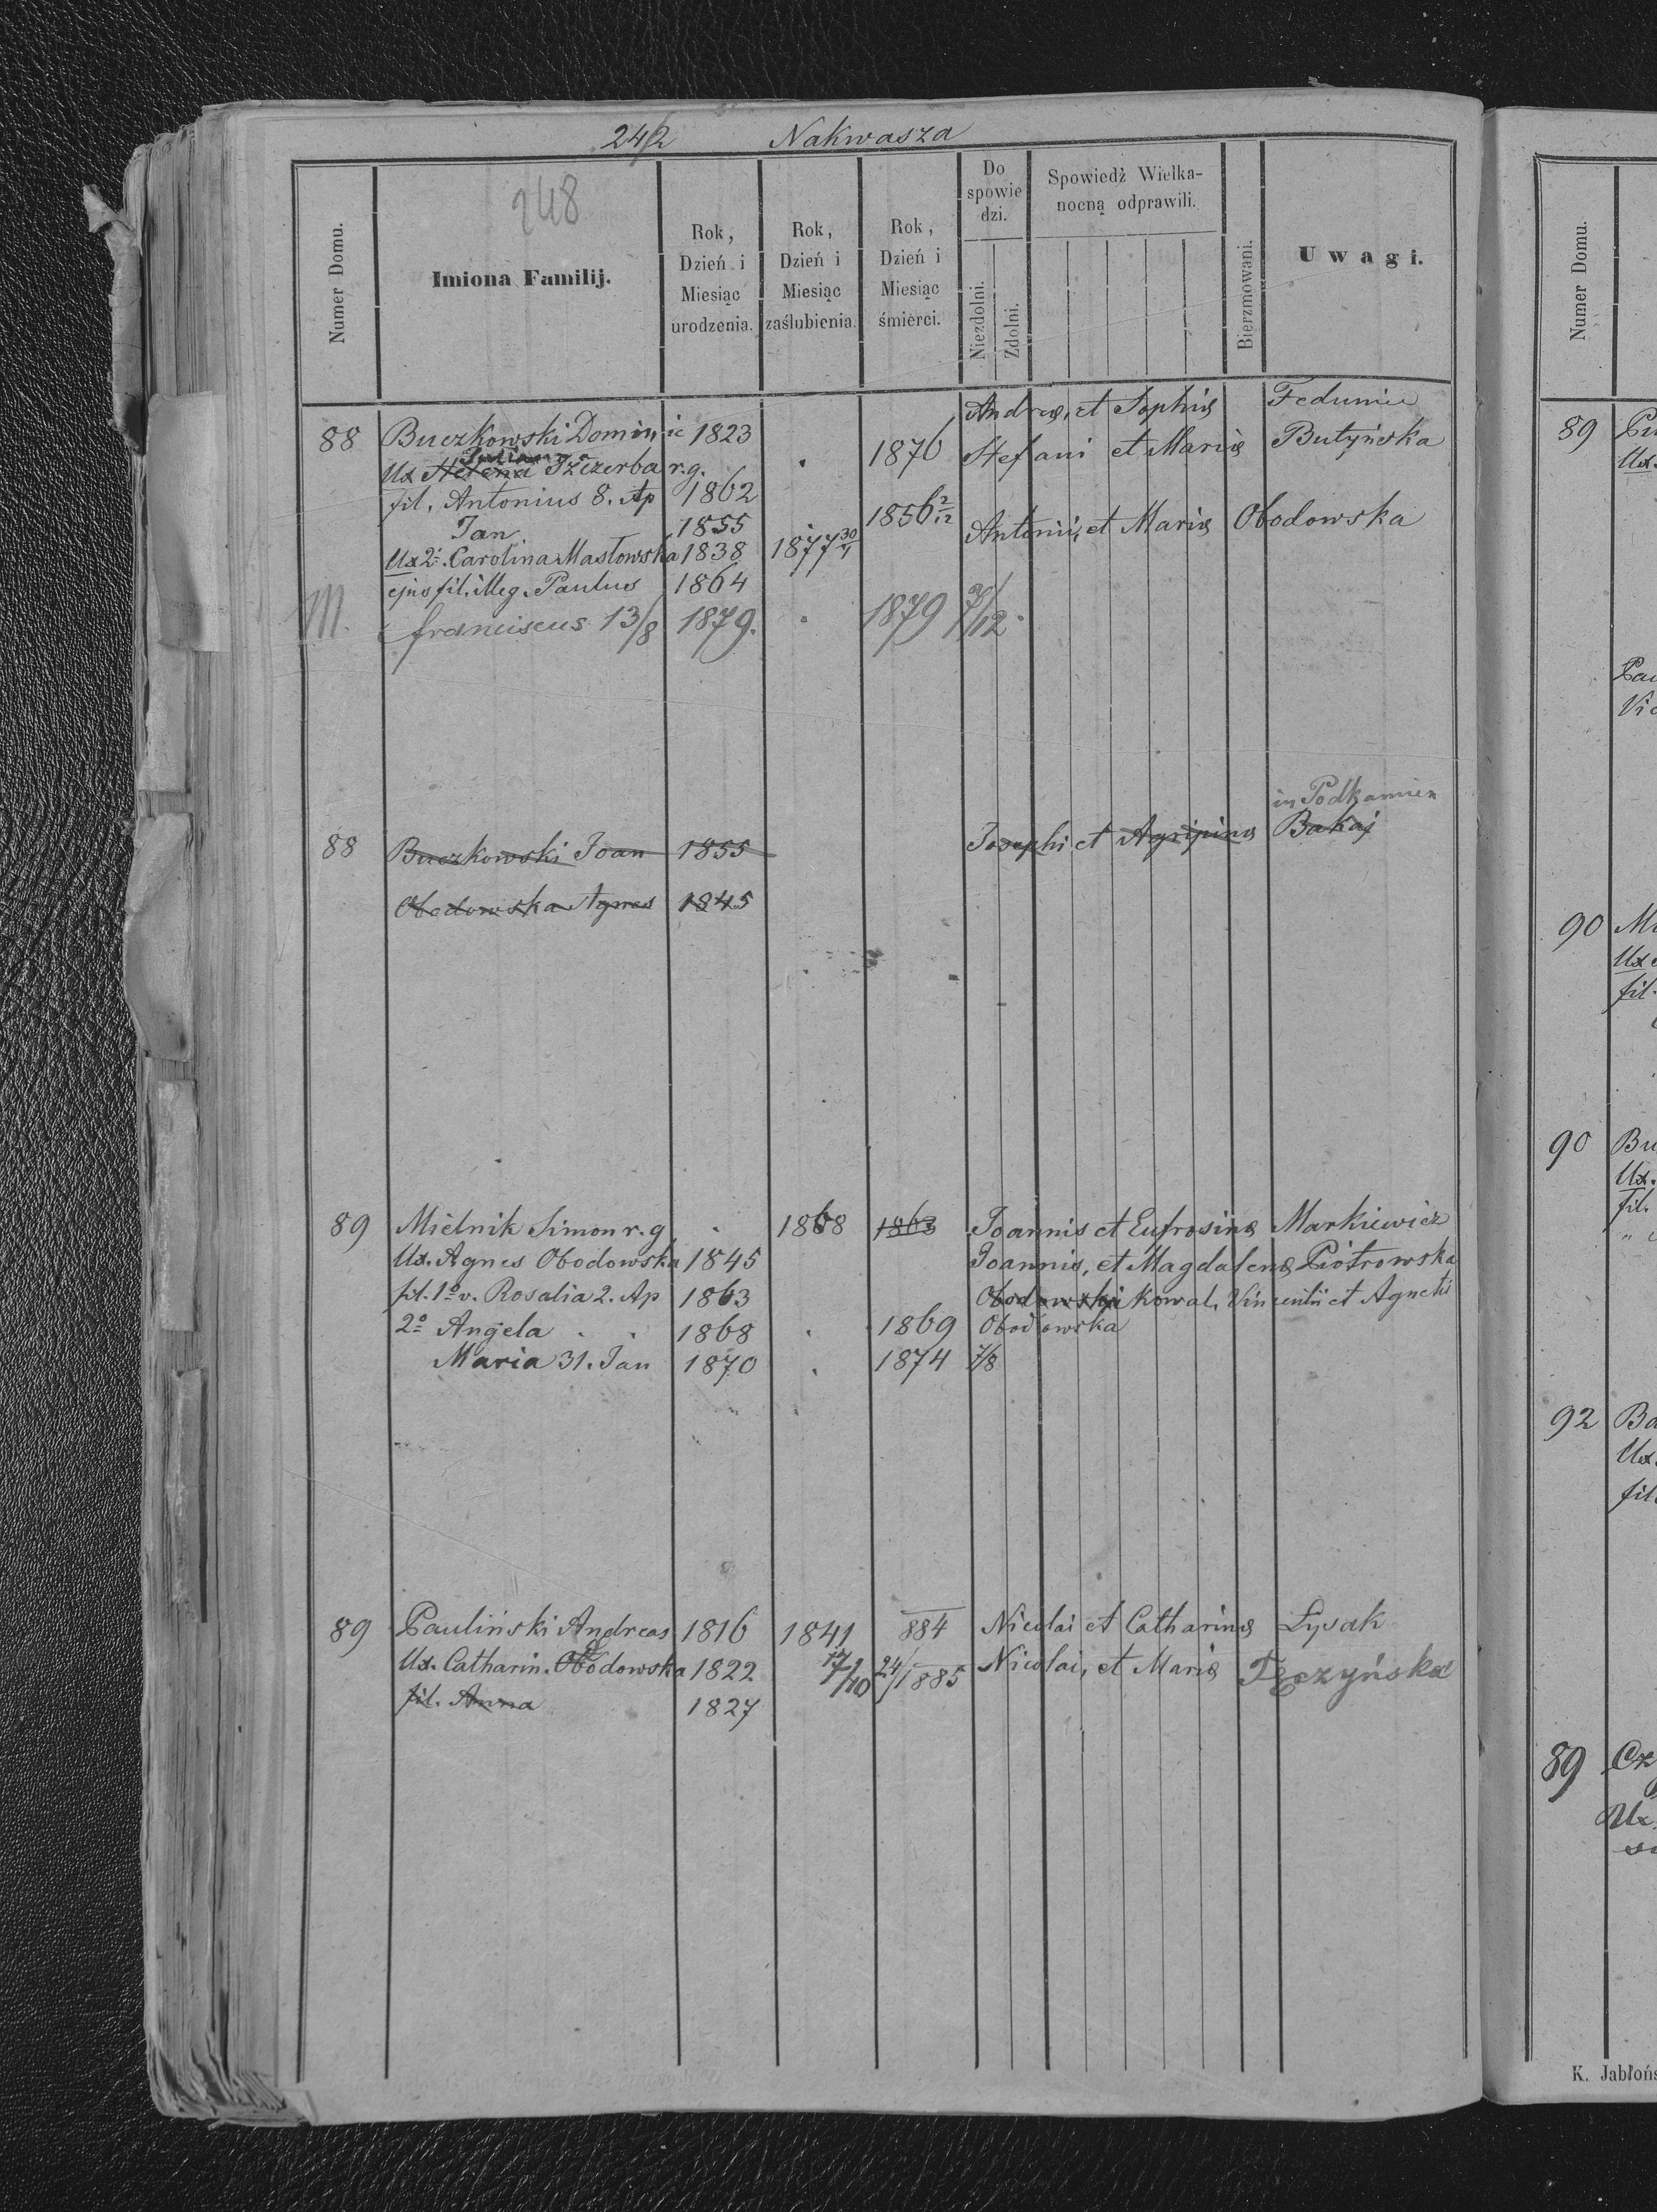 242 Nakwasza
248
Numer Domu.
Imiona Familij.
Rok, Dzień i Miesiąc urodzenia.
Rok, Dzień i Miesiąc zaślubienia.
Rok, Dzień i Miesiąc śmierci.
Do spowie dzi.
Niezdolni.
Zdolni.
Spowiedź Wielka-
nocną odprawili.
Bierzmowani.
Uwagi.
88 Buczkowski Dominic 1823 Andreæ, et Sophiæ Feduniu
Juliana
Ux Helena Szczerba r.g. 1870 Stefani et Mariæ Butyńska
fil. Antonius 8. Ap 1862
Jan 1855 1856 2/12
Ux 2º. Carolina Masłowska 1838 1877 30/1 Antonii, et Mariæ Obodowska
ejus fil. illeg. Paulus 1864
m. franciscus 13/8 1879. 1879 3/12
in Podkamien
88 Buczkowski Joan 1855 Josephi et Agripinæ Bakaj
Obodowska Agnes 1845
89 Mielnik Simon r.g. 1868 1863 Joannis et Eufrosinæ Markiewicz
Ux. Agnes Obodowska 1845 Joannis, et Magdalenæ Piotrowska
fil. 1º v. Rosalia 2. Ap 1863 Obodowski Kowal, Vincentii et Agneti
2º Angela 1868 1869 Obodowska
Maria 31. Jan 1870 1874 7/8
89 Pauliński Andreas 1816 1841 884 Nicolai et Catharinæ Łysak
Ux. Catharin. Obodowska 1822 17/10 24/1885 Nicolai, et Mariæ Tęczyńska
fil. Anna 1827
Numer Domu.
89
Ux.
90
Ux
fil.
90
Ux.
fil.
92
Ux.
fil.
89
Ux.
K. Jabłońs